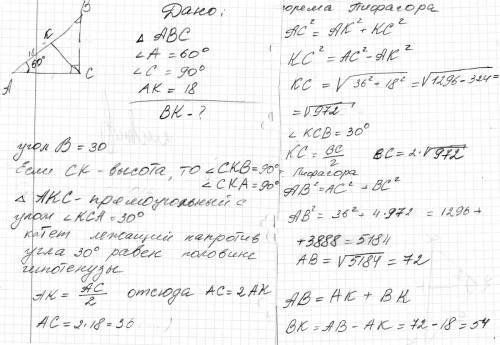 B
K
18
60°
A
C
Дано:
△ ABC
∠A = 60°
∠C = 90°
AK = 18
BK - ?
угол B = 30
Если CK - высота, то ∠CKB = 90°
∠CKA = 90°
△ AKC - прямоугольный с
углом ∠KCA = 30°
катет лежащий напротив
угла 30° равен половине
гипотенузы
AK = AC/2 отсюда AC = 2AK
AC = 2·18 = 36
орема Пифагора
AC² = AK² + KC²
KC² = AC² - AK²
KC = √36² + 18² = √1296 - 324 =
= √972
∠ KCB = 30°
KC = BC/2 BC = 2·√972
Пифагора
AB² = AC² + BC²
AB² = 36² + 4·972 = 1296 +
+ 3888 = 5184
AB = √5184 = 72
AB = AK + BK
BK = AB - AK = 72 - 18 = 54